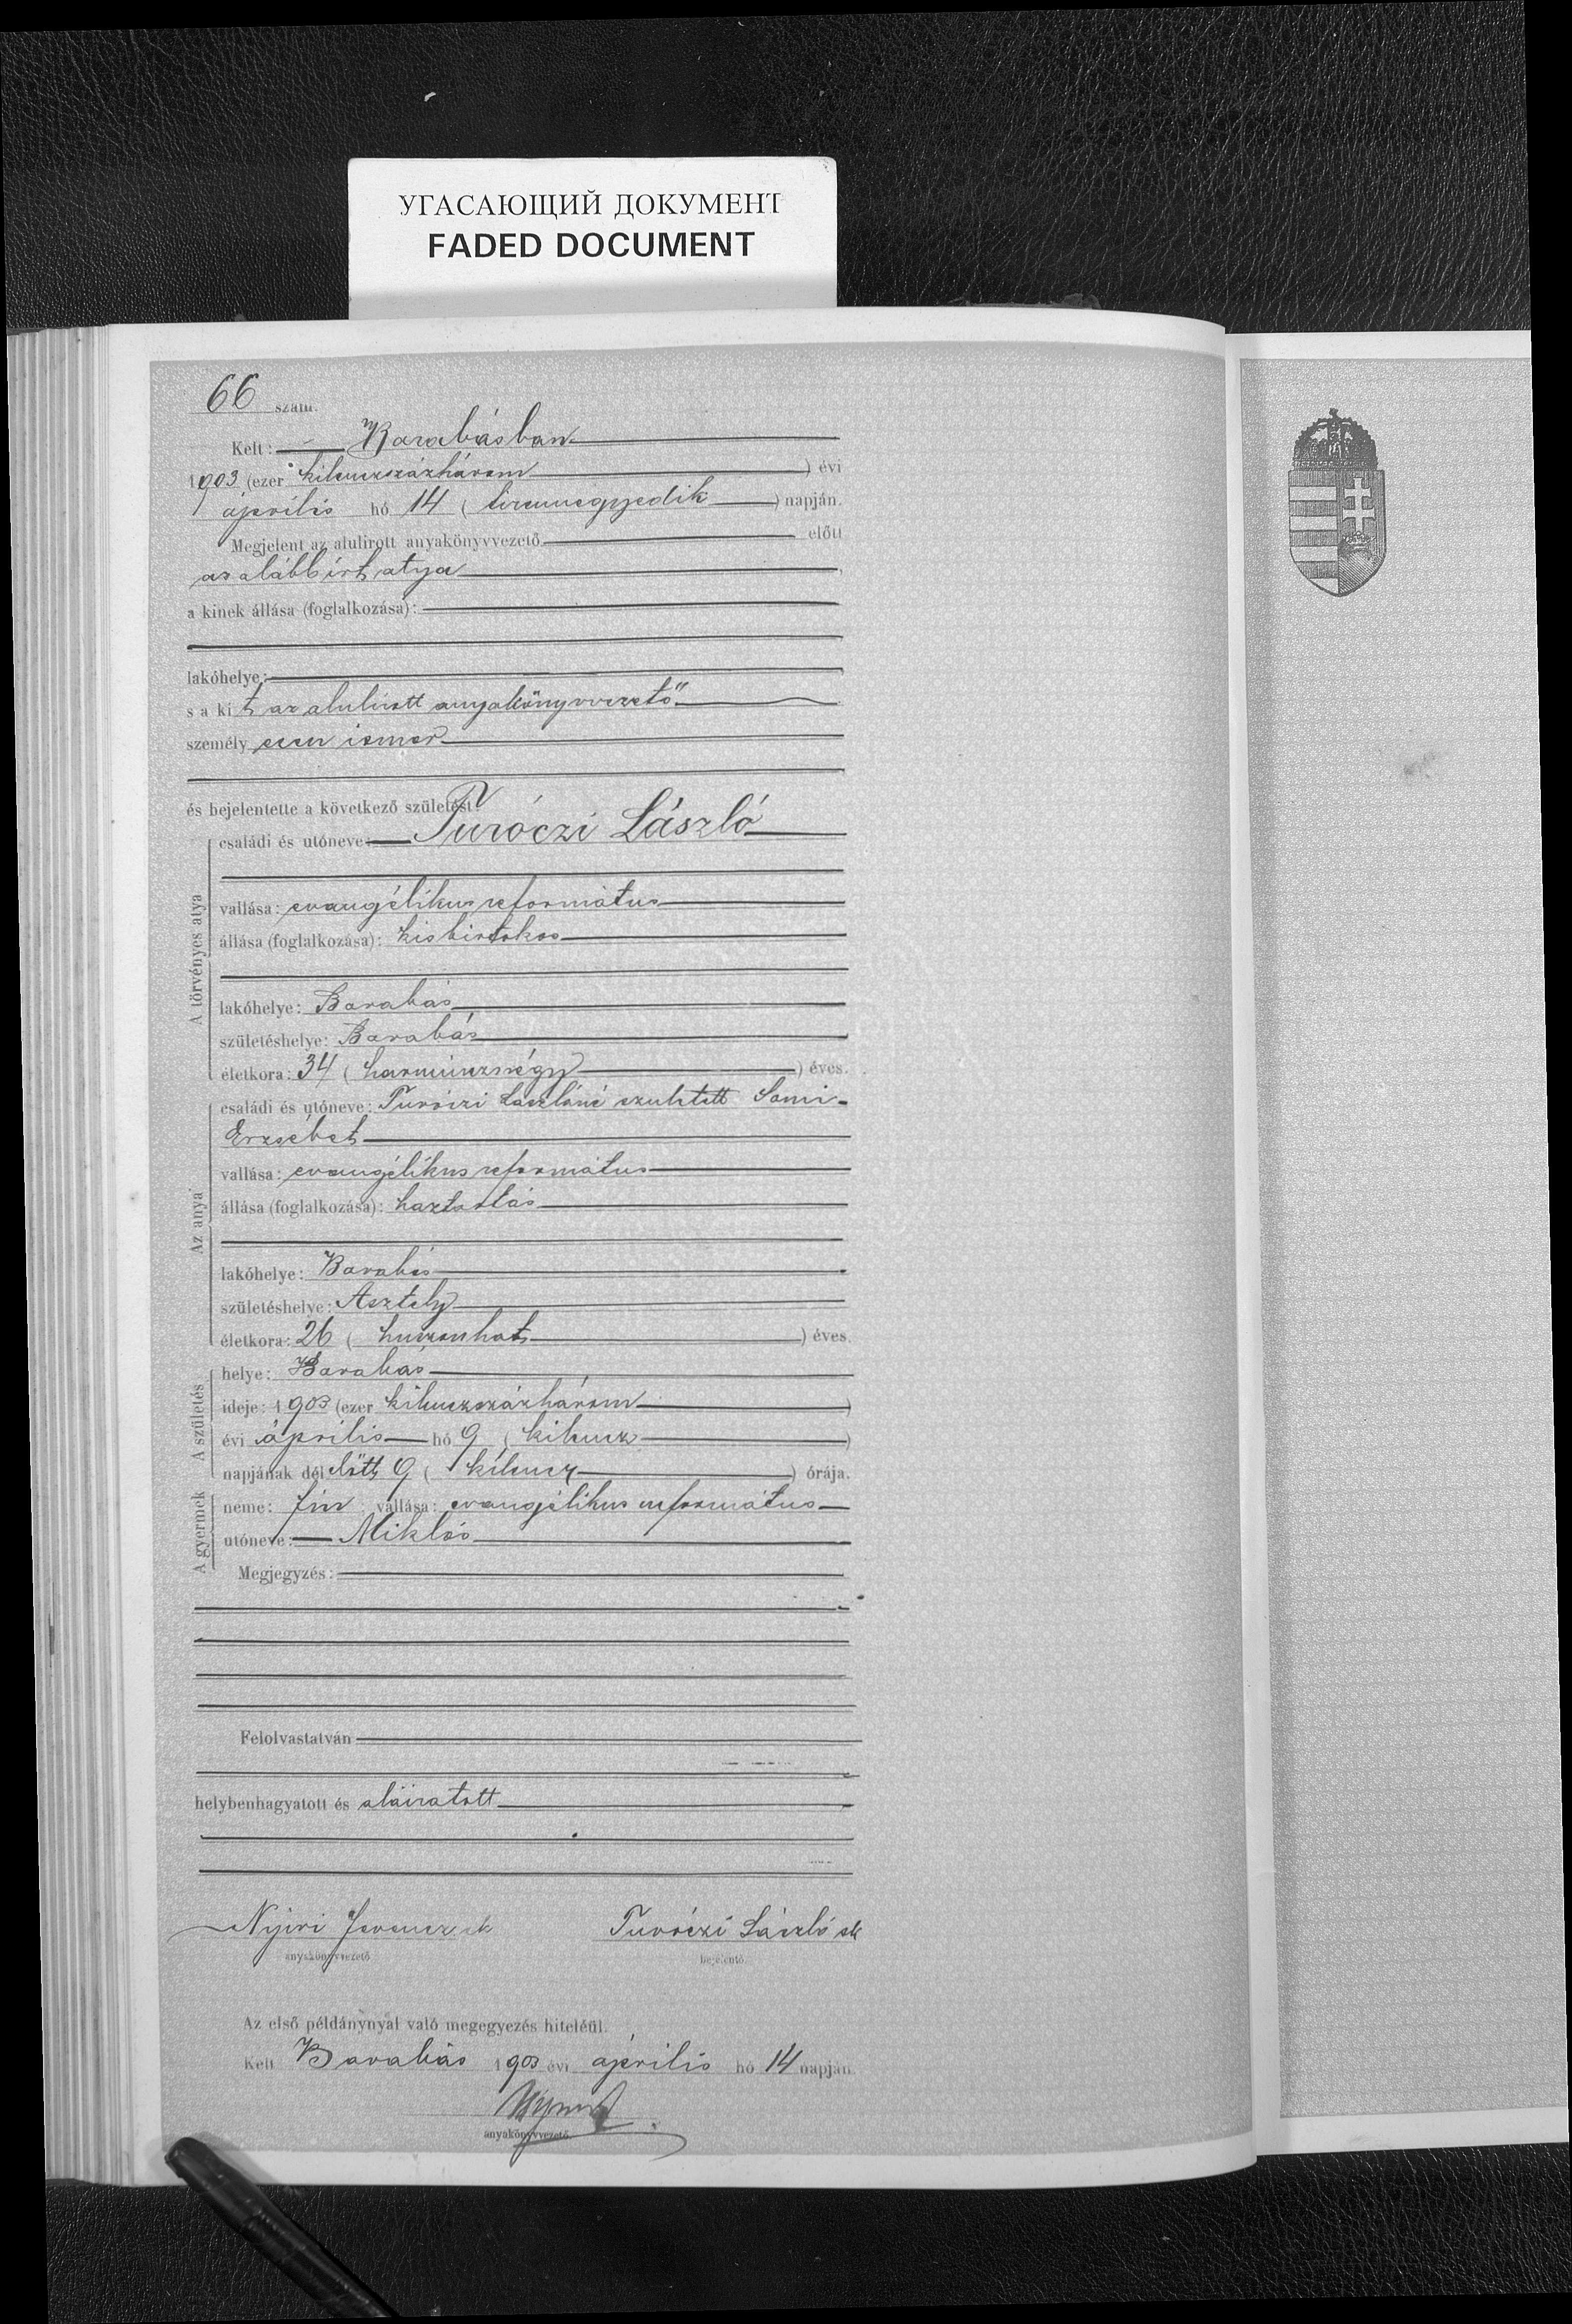 УГАСАЮЩИЙ ДОКУМЕНТ
FADED DOCUMENT
66 szám.
Kelt: Barabásban
1903 (ezer kilenczszázhárom) évi
április hó 14 (tizennegyedik) napján.
Megjelent az alulirott anyakönyvvezető előtt
az alább írt atya
a kinek állása (foglalkozása):
lakóhelye:
s a kit az alulirott anyakönyvvezető
személyesen ismer
és bejelentette a következő születést:
A törvényes atya
családi és utóneve: Turóczi László
vallása: evangélikus református
állása (foglalkozása): kisbirtokos
lakóhelye: Barabás
születéshelye: Barabás
életkora: 34 (harmincznégy) éves.
Az anya
családi és utóneve: Turóczi Lászlóné született
Erzsébet
vallása: evangélikus református
állása (foglalkozása): háztartás
lakóhelye: Barabás
születéshelye: Asztély
életkora: 26 (huszonhat) éves.
A születés
helye: Barabás
ideje: 1903 (ezer kilenczszázhárom)
évi április hó 9 (kilencz)
napjának dél előtt 9 (kilencz) órája.
A gyermek
neme: fiu vallása: evangélikus református
utóneve: Miklós
Megjegyzés:
Felolvastatván
helybenhagyatott és aláiratott
Nyiri Ferencz sk Turóczi László sk
anyakönyvvezető bejelentő.
Az első példánynyal való megegyezés hiteléül.
Kelt Barabás 1903 évi április hó 14 napján
anyakönyvvezető.